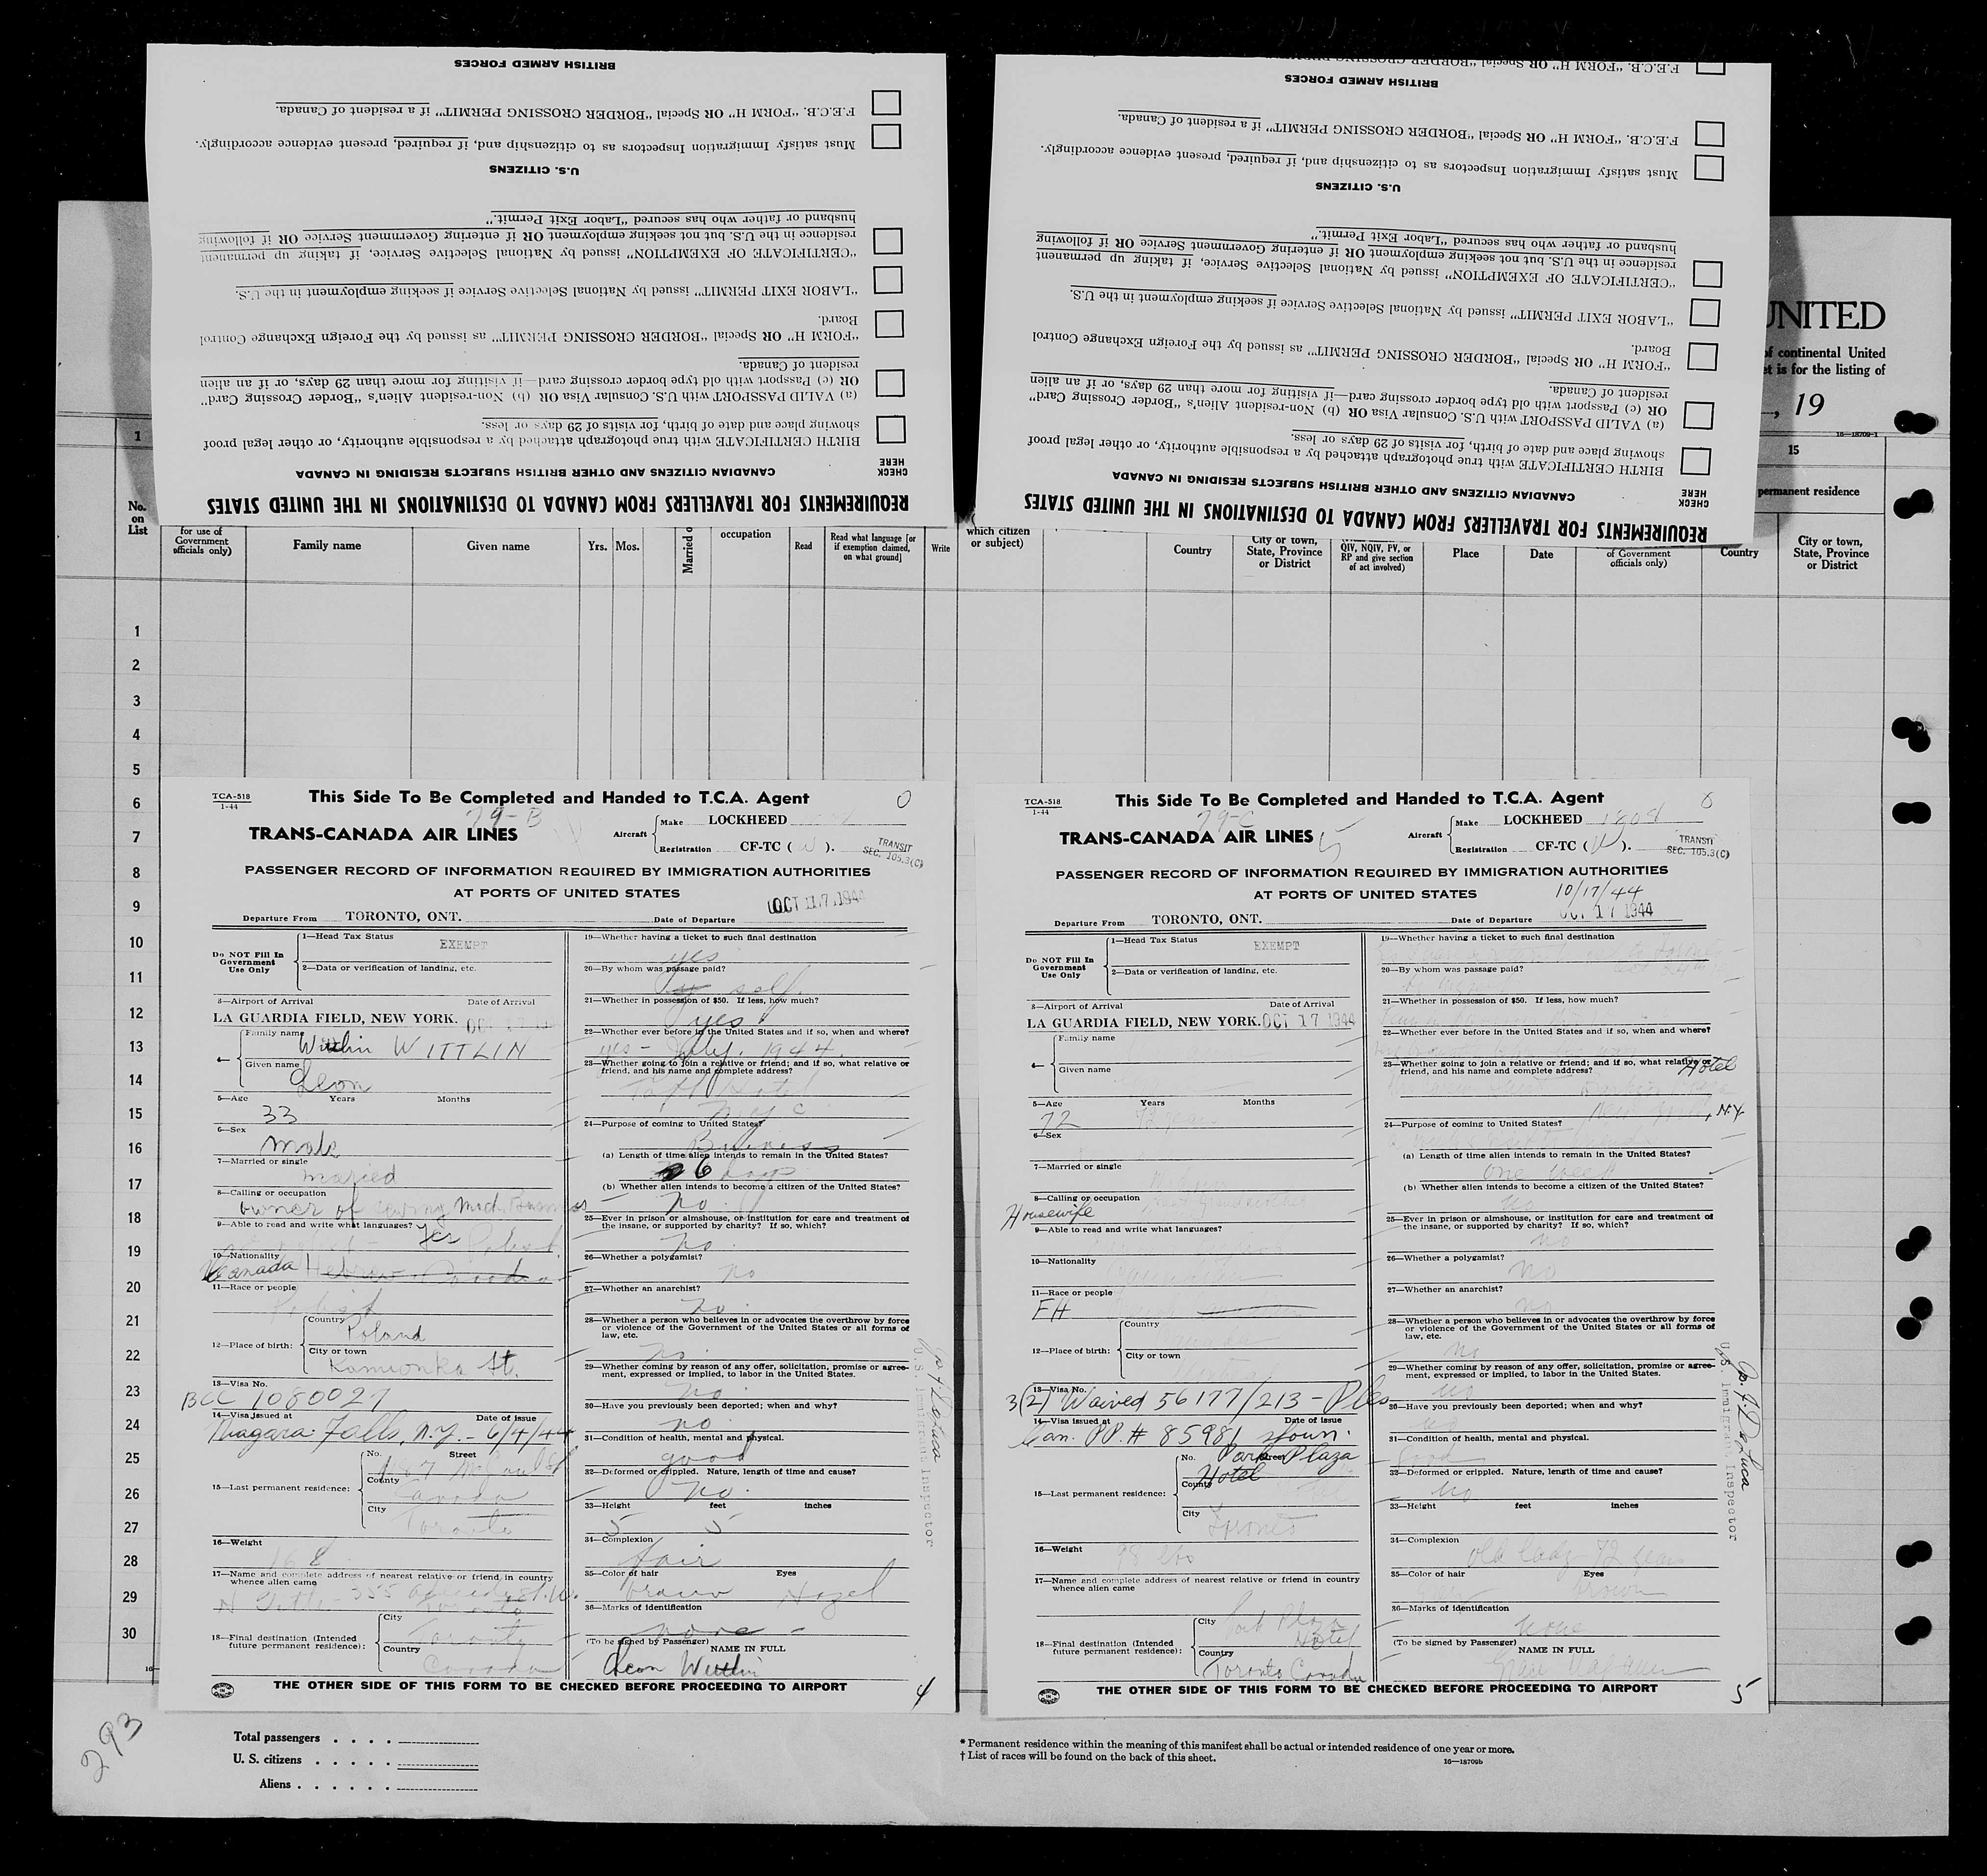 BRITISH ARMED FORCES
F.E.C.B. "FORM H" OR Special "BORDER CROSSING PERMIT" if a resident of Canada.
Must satisfy Immigration Inspectors as to citizenship and, if required, present evidence accordingly.
U.S. CITIZENS
husband or father who has secured "Labor Exit Permit."
residence in the U.S. but not seeking employment OR if entering Government Service OR if following
"CERTIFICATE OF EXEMPTION" issued by National Selective Service, if taking up permanent
"LABOR EXIT PERMIT" issued by National Selective Service if seeking employment in the U.S.
Board.
"FORM H" OR Special "BORDER CROSSING PERMIT" as issued by the Foreign Exchange Control
resident of Canada.
OR (c) Passport with old type border crossing card—if visiting for more than 29 days, or if an alien
(a) VALID PASSPORT with U.S. Consular Visa OR (b) Non-resident Alien's "Border Crossing Card"
showing place and date of birth, for visits of 29 days or less.
BIRTH CERTIFICATE with true photograph attached by a responsible authority, or other legal proof
CANADIAN CITIZENS AND OTHER BRITISH SUBJECTS RESIDING IN CANADA
CHECK HERE
REQUIREMENTS FOR TRAVELLERS FROM CANADA TO DESTINATIONS IN THE UNITED STATES
F.E.C.B. "FORM H" OR Special "BORDER CROSSING
BRITISH ARMED FORCES
F.E.C.B. "FORM H" OR Special "BORDER CROSSING PERMIT" if a resident of Canada.
Must satisfy Immigration Inspectors as to citizenship and, if required, present evidence accordingly.
U.S. CITIZENS
husband or father who has secured "Labor Exit Permit."
residence in the U.S. but not seeking employment OR if entering Government Service OR if following
"CERTIFICATE OF EXEMPTION" issued by National Selective Service, if taking up permanent
"LABOR EXIT PERMIT" issued by National Selective Service if seeking employment in the U.S.
Board.
"FORM H" OR Special "BORDER CROSSING PERMIT" as issued by the Foreign Exchange Control
resident of Canada.
OR (c) Passport with old type border crossing card—if visiting for more than 29 days, or if an alien
(a) VALID PASSPORT with U.S. Consular Visa OR (b) Non-resident Alien's "Border Crossing Card"
showing place and date of birth, for visits of 29 days or less.
BIRTH CERTIFICATE with true photograph attached by a responsible authority, or other legal proof
CANADIAN CITIZENS AND OTHER BRITISH SUBJECTS RESIDING IN CANADA
CHECK HERE
REQUIREMENTS FOR TRAVELLERS FROM CANADA TO DESTINATIONS IN THE UNITED STATES
UNITED
of continental United
is for the listing of
, 19
16—18709-1
1
15
permanent residence
No. on List
for use of Government officials only)
Family name
Given name
Yrs. Mos.
Married o
occupation
Read
Read what language [or if exemption claimed, on what ground]
Write
which citizen or subject)
Country
City or town, State, Province or District
QIV, NQIV, PV, or RP and give section of act involved)
Place
Date
of Government officials only)
Country
City or town, State, Province or District
1
2
3
4
5
6
7
8
9
10
11
12
13
14
15
16
17
18
19
20
21
22
23
24
25
26
27
28
29
30
TCA-518
1-44
This Side To Be Completed and Handed to T.C.A. Agent
0
79-B
TRANS-CANADA AIR LINES
Aircraft
Make LOCKHEED
Registration CF-TC ( ).
TRANSIT
SEC. 105.3(C)
PASSENGER RECORD OF INFORMATION REQUIRED BY IMMIGRATION AUTHORITIES
AT PORTS OF UNITED STATES
Departure From TORONTO, ONT.
Date of Departure OCT 17 1944
Do NOT Fill In Government Use Only
1—Head Tax Status EXEMPT
2—Data or verification of landing, etc.
3—Airport of Arrival Date of Arrival
LA GUARDIA FIELD, NEW YORK. OCT 17
4— Family name Wittlin WITTLIN
Given name Leon
5—Age Years Months
33
6—Sex
Male
7—Married or single
Maried
8—Calling or occupation
owner of sewing Mach. Business
9—Able to read and write what languages? Yes
10—Nationality
Canada Hebrew Canada
11—Race or people
12—Place of birth:
Country Poland
City or town Kamionka St.
13—Visa No.
BCC 1080027
14—Visa issued at Date of issue
Niagara Falls, N.Y. - 6/4/44
15—Last permanent residence:
No. Street
County Canada
City Toronto
16—Weight
168
17—Name and complete address of nearest relative or friend in country whence alien came
18—Final destination (Intended future permanent residence):
City Toronto
Country Canada
19—Whether having a ticket to such final destination
yes
20—By whom was passage paid?
self
21—Whether in possession of $50. If less, how much?
yes
22—Whether ever before in the United States and if so, when and where?
yes - July. 1944.
23—Whether going to join a relative or friend; and if so, what relative or friend, and his name and complete address?
Taft Hotel
N.Y.C
24—Purpose of coming to United States?
Business
(a) Length of time alien intends to remain in the United States?
6 days
(b) Whether alien intends to become a citizen of the United States?
no
25—Ever in prison or almshouse, or institution for care and treatment of the insane, or supported by charity? If so, which?
no.
26—Whether a polygamist?
no
27—Whether an anarchist?
no.
28—Whether a person who believes in or advocates the overthrow by force or violence of the Government of the United States or all forms of law, etc.
no.
29—Whether coming by reason of any offer, solicitation, promise or agreement, expressed or implied, to labor in the United States.
no.
30—Have you previously been deported; when and why?
no.
31—Condition of health, mental and physical.
good
32—Deformed or crippled. Nature, length of time and cause?
no.
33—Height feet inches
5 5
34—Complexion
fair
35—Color of hair Eyes
brown Hazel
36—Marks of identification
none -
(To be signed by Passenger)
NAME IN FULL
Leon Wittlin
U.S. Immigrant Inspector
THE OTHER SIDE OF THIS FORM TO BE CHECKED BEFORE PROCEEDING TO AIRPORT
4
TCA-518
1-44
This Side To Be Completed and Handed to T.C.A. Agent
79-C
TRANS-CANADA AIR LINES
5
Aircraft
Make LOCKHEED 1808
Registration CF-TC ( ).
TRANSIT
SEC. 105.3(C)
PASSENGER RECORD OF INFORMATION REQUIRED BY IMMIGRATION AUTHORITIES
AT PORTS OF UNITED STATES
10/17/44
Departure From TORONTO, ONT.
Date of Departure OCT 17 1944
Do NOT Fill In Government Use Only
1—Head Tax Status EXEMPT
2—Data or verification of landing, etc.
3—Airport of Arrival Date of Arrival
LA GUARDIA FIELD, NEW YORK. OCT 17 1944
4— Family name
Given name
5—Age Years Months
72
6—Sex
7—Married or single
8—Calling or occupation
Housewife
9—Able to read and write what languages?
10—Nationality
11—Race or people
FH
12—Place of birth:
Country
City or town
13—Visa No.
3(2) Waived 56177/213 -
14—Visa issued at Date of issue
Can. PP. # 85981 shown.
15—Last permanent residence:
No. Street Park Plaza
Hotel
County
City Toronto
16—Weight
98 lbs
17—Name and complete address of nearest relative or friend in country whence alien came
18—Final destination (Intended future permanent residence):
City Park Plaza Hotel
Country Toronto Canada
19—Whether having a ticket to such final destination
20—By whom was passage paid?
21—Whether in possession of $50. If less, how much?
22—Whether ever before in the United States and if so, when and where?
23—Whether going to join a relative or friend; and if so, what relative or friend, and his name and complete address?
Hotel
New York, N.Y.
24—Purpose of coming to United States?
(a) Length of time alien intends to remain in the United States?
One week
(b) Whether alien intends to become a citizen of the United States?
No
25—Ever in prison or almshouse, or institution for care and treatment of the insane, or supported by charity? If so, which?
no
26—Whether a polygamist?
no
27—Whether an anarchist?
no
28—Whether a person who believes in or advocates the overthrow by force or violence of the Government of the United States or all forms of law, etc.
no
29—Whether coming by reason of any offer, solicitation, promise or agreement, expressed or implied, to labor in the United States.
no
30—Have you previously been deported; when and why?
no
31—Condition of health, mental and physical.
Good
32—Deformed or crippled. Nature, length of time and cause?
no
33—Height feet inches
34—Complexion
old lady 72 years
35—Color of hair Eyes
Brown
36—Marks of identification
none
(To be signed by Passenger)
NAME IN FULL
Jos. J. DeLuca
U.S. Immigrant Inspector
THE OTHER SIDE OF THIS FORM TO BE CHECKED BEFORE PROCEEDING TO AIRPORT
5
293
Total passengers
U. S. citizens
Aliens
* Permanent residence within the meaning of this manifest shall be actual or intended residence of one year or more.
† List of races will be found on the back of this sheet.
16—18709b